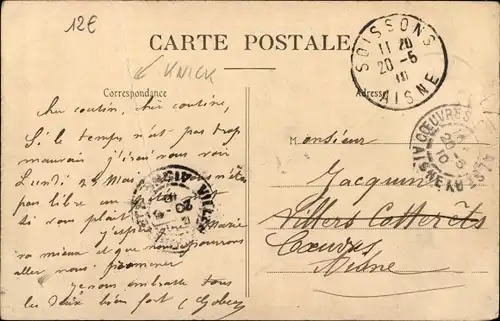 12€
CARTE POSTALE
KNICK
Correspondance
Adresse
SOISSONS
11 20
20 -5
10
AISNE
COEUVRES
AISNE
20 -5
10
VILLERS
AISNE
20
Cher cousin, chère cousine,
Si le temps n'est pas trop
mauvais j'irai vous voir
Lundi 23 Mai
pas libre
vous plait
Marie
va mieux et que nous pourrons
aller nous promener
Je vous embrasse tous
les deux bien fort
Monsieur
Jacquin
Villers Cotterêts
Coeuvres
Aisne